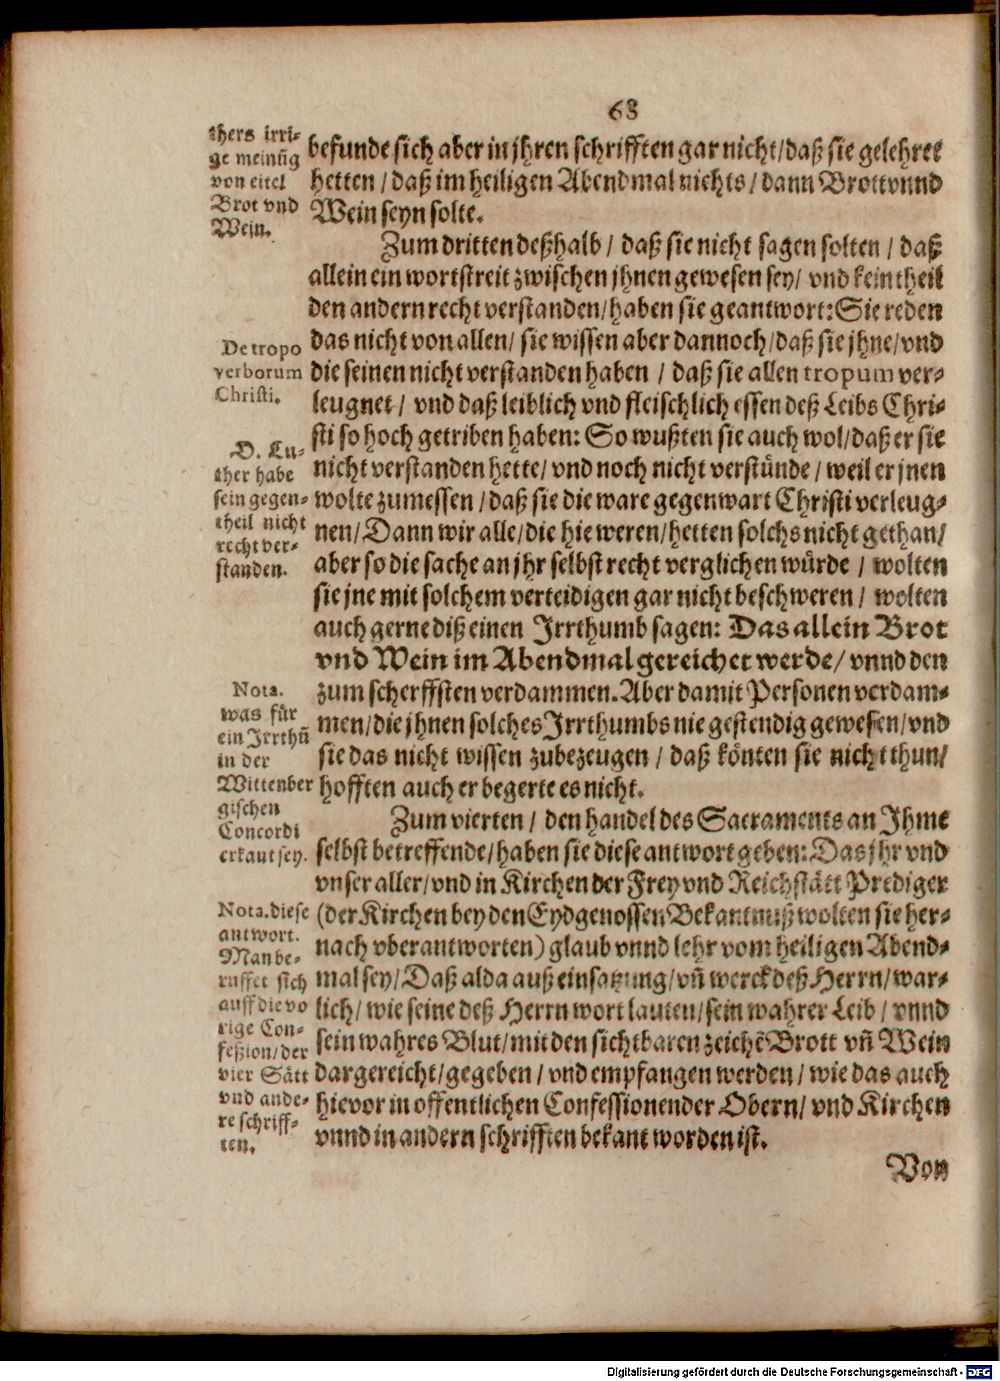 68
thers irri-
ge meinũg
von eitel
Brot vnd
Wein.
befunde sich aber in jhren schrifften gar nicht/daß sie gelehret
hetten / daß im heiligen Abendmal nichts / dann Brott vnnd
Wein seyn solte.
Zum dritten deßhalb / daß sie nicht sagen solten / daß
allein ein wortstreit zwischen jhnen gewesen sey/ vnd kein theil
den andern recht verstanden/haben sie geantwort: Sie reden
De tropo
verborum
Christi.
das nicht von allen/ sie wissen aber dannoch/daß sie jhne/vnd
die seinen nicht verstanden haben / daß sie allen tropum ver-
leugnet / vnd daß leiblich vnd fleischlich essen deß Leibs Chri-
sti so hoch getriben haben: So wußten sie auch wol/daß er sie
D. Lu-
ther habe
sein gegen-
theil nicht
recht ver-
standen.
nicht verstanden hette/ vnd noch nicht verstünde / weil er jnen
wolte zumessen / daß sie die ware gegenwart Christi verleug-
nen/ Dann wir alle/die hie weren/hetten solchs nicht gethan/
aber so die sache an jhr selbst recht verglichen würde / wolten
sie jne mit solchem verteidigen gar nicht beschweren / wolten
auch gerne diß einen Irrthumb sagen: Das allein Brot
vnd Wein im Abendmal gereichet werde/ vnnd den
Nota.
was für
ein Irrthũ
in der
Wittenber
gischen
Concordi
erkant sey.
zum scherffsten verdammen. Aber damit Personen verdam-
men/die jhnen solches Irrthumbs nie gestendig gewesen/vnd
sie das nicht wissen zubezeugen / daß könten sie nicht thun/
hofften auch er begerte es nicht.
Zum vierten / den handel des Sacraments an Ihme
selbst betreffende/haben sie diese antwort geben: Das jhr vnd
vnser aller/vnd in Kirchen der Frey vnd Reichstätt Prediger
Nota. diese
antwort.
Man be-
ruffet sich
auff die vo
rige Con-
feßion/der
vier Sätt
vnd ande-
re schriff-
ten.
(der Kirchen bey den Eydgenossen Bekantnuß wolten sie her-
nach vberantworten) glaub vnnd lehr vom heiligen Abend-
mal sey/ Daß alda auß einsatzung/ vñ werck deß Herrn/ war-
lich/ wie seine deß Herrn wort lauten/sein wahrer Leib / vnnd
sein wahres Blut/mit den sichtbaren zeichẽ Brott vñ Wein
dargereicht/gegeben / vnd empfangen werden / wie das auch
hievor in offentlichen Confessionen der Obern/ vnd Kirchen
vnnd in andern schrifften bekant worden ist.
Von
Digitalisierung gefördert durch die Deutsche Forschungsgemeinschaft - DFG